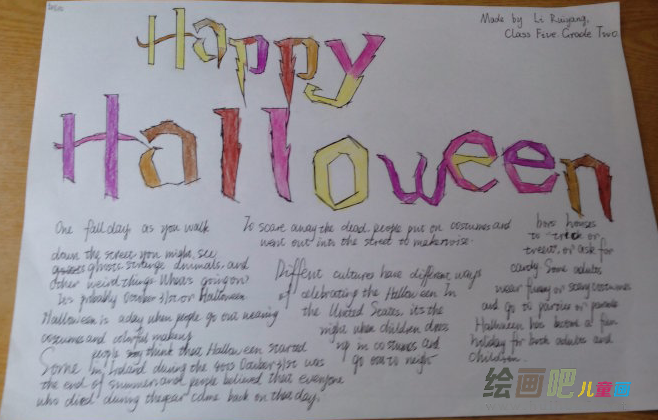 Happy
Halloween
Made by Li Ruiyang,
Class Five Grade Two
One fall day, as you walk
down the street you might see
ghosts strange animals and
other weird things. Whats going on?
Its probably October 31st or Halloween
Halloween is a day when people go out wearing
costumes and colorful makeup
Some people think that Halloween started
in Ireland during the October 31st was
the end of summer and people believed that everyone
who died during the year came back on that day.
To scare away the dead, people put on costumes and
went out into the street to make noise.
Diffent cultures have different ways
of celebrating the Halloween. In
the United States, it's the
night when children dress
up in costumes and
go out to neigh
bors houses
to trick or
treat, or ask for
candy. Some adults
wear funny or scary costumes
and go to parties or parade
Halloween has become a fun
holiday for both adults and
children.
绘画吧儿童画